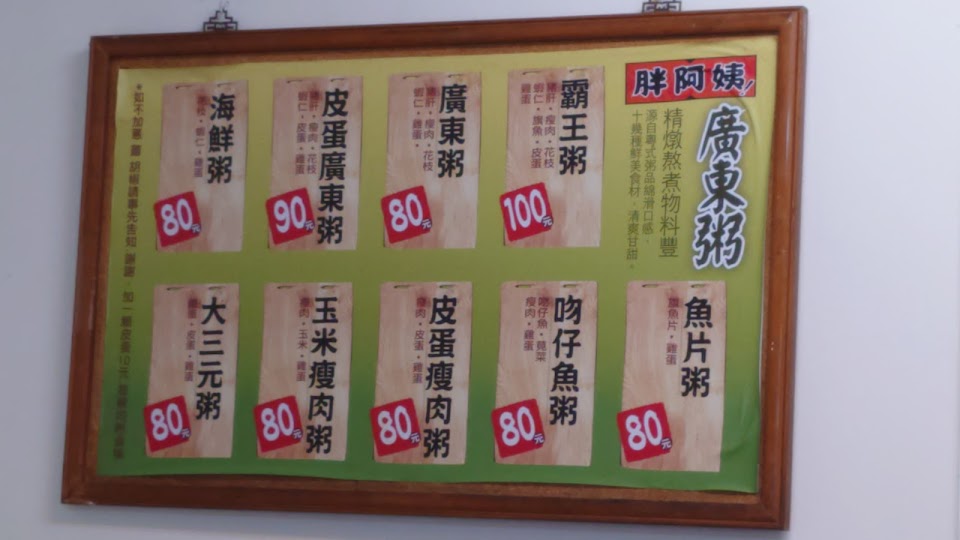 胖阿姨!
廣東粥
精燉熬煮物料豐
源自粵式粥品綿滑口感，
十幾種鮮美食材，清爽甘甜。
霸王粥
豬肝，瘦肉，花枝
蝦仁，旗魚，皮蛋
雞蛋
100元
廣東粥
豬肝，瘦肉，花枝
蝦仁，雞蛋。
80元
皮蛋廣東粥
豬肝，瘦肉，花枝
蝦仁，皮蛋，雞蛋
90元
海鮮粥
花枝，蝦仁，雞蛋
80元
魚片粥
旗魚片，雞蛋
80元
吻仔魚粥
吻仔魚，莧菜
瘦肉，雞蛋
80元
皮蛋瘦肉粥
瘦肉，皮蛋，雞蛋
80元
玉米瘦肉粥
瘦肉，玉米，雞蛋
80元
大三元粥
鹹蛋，皮蛋，雞蛋
80元
*如不加蔥 薑 胡椒請事先告知 謝謝，加一顆皮蛋10元